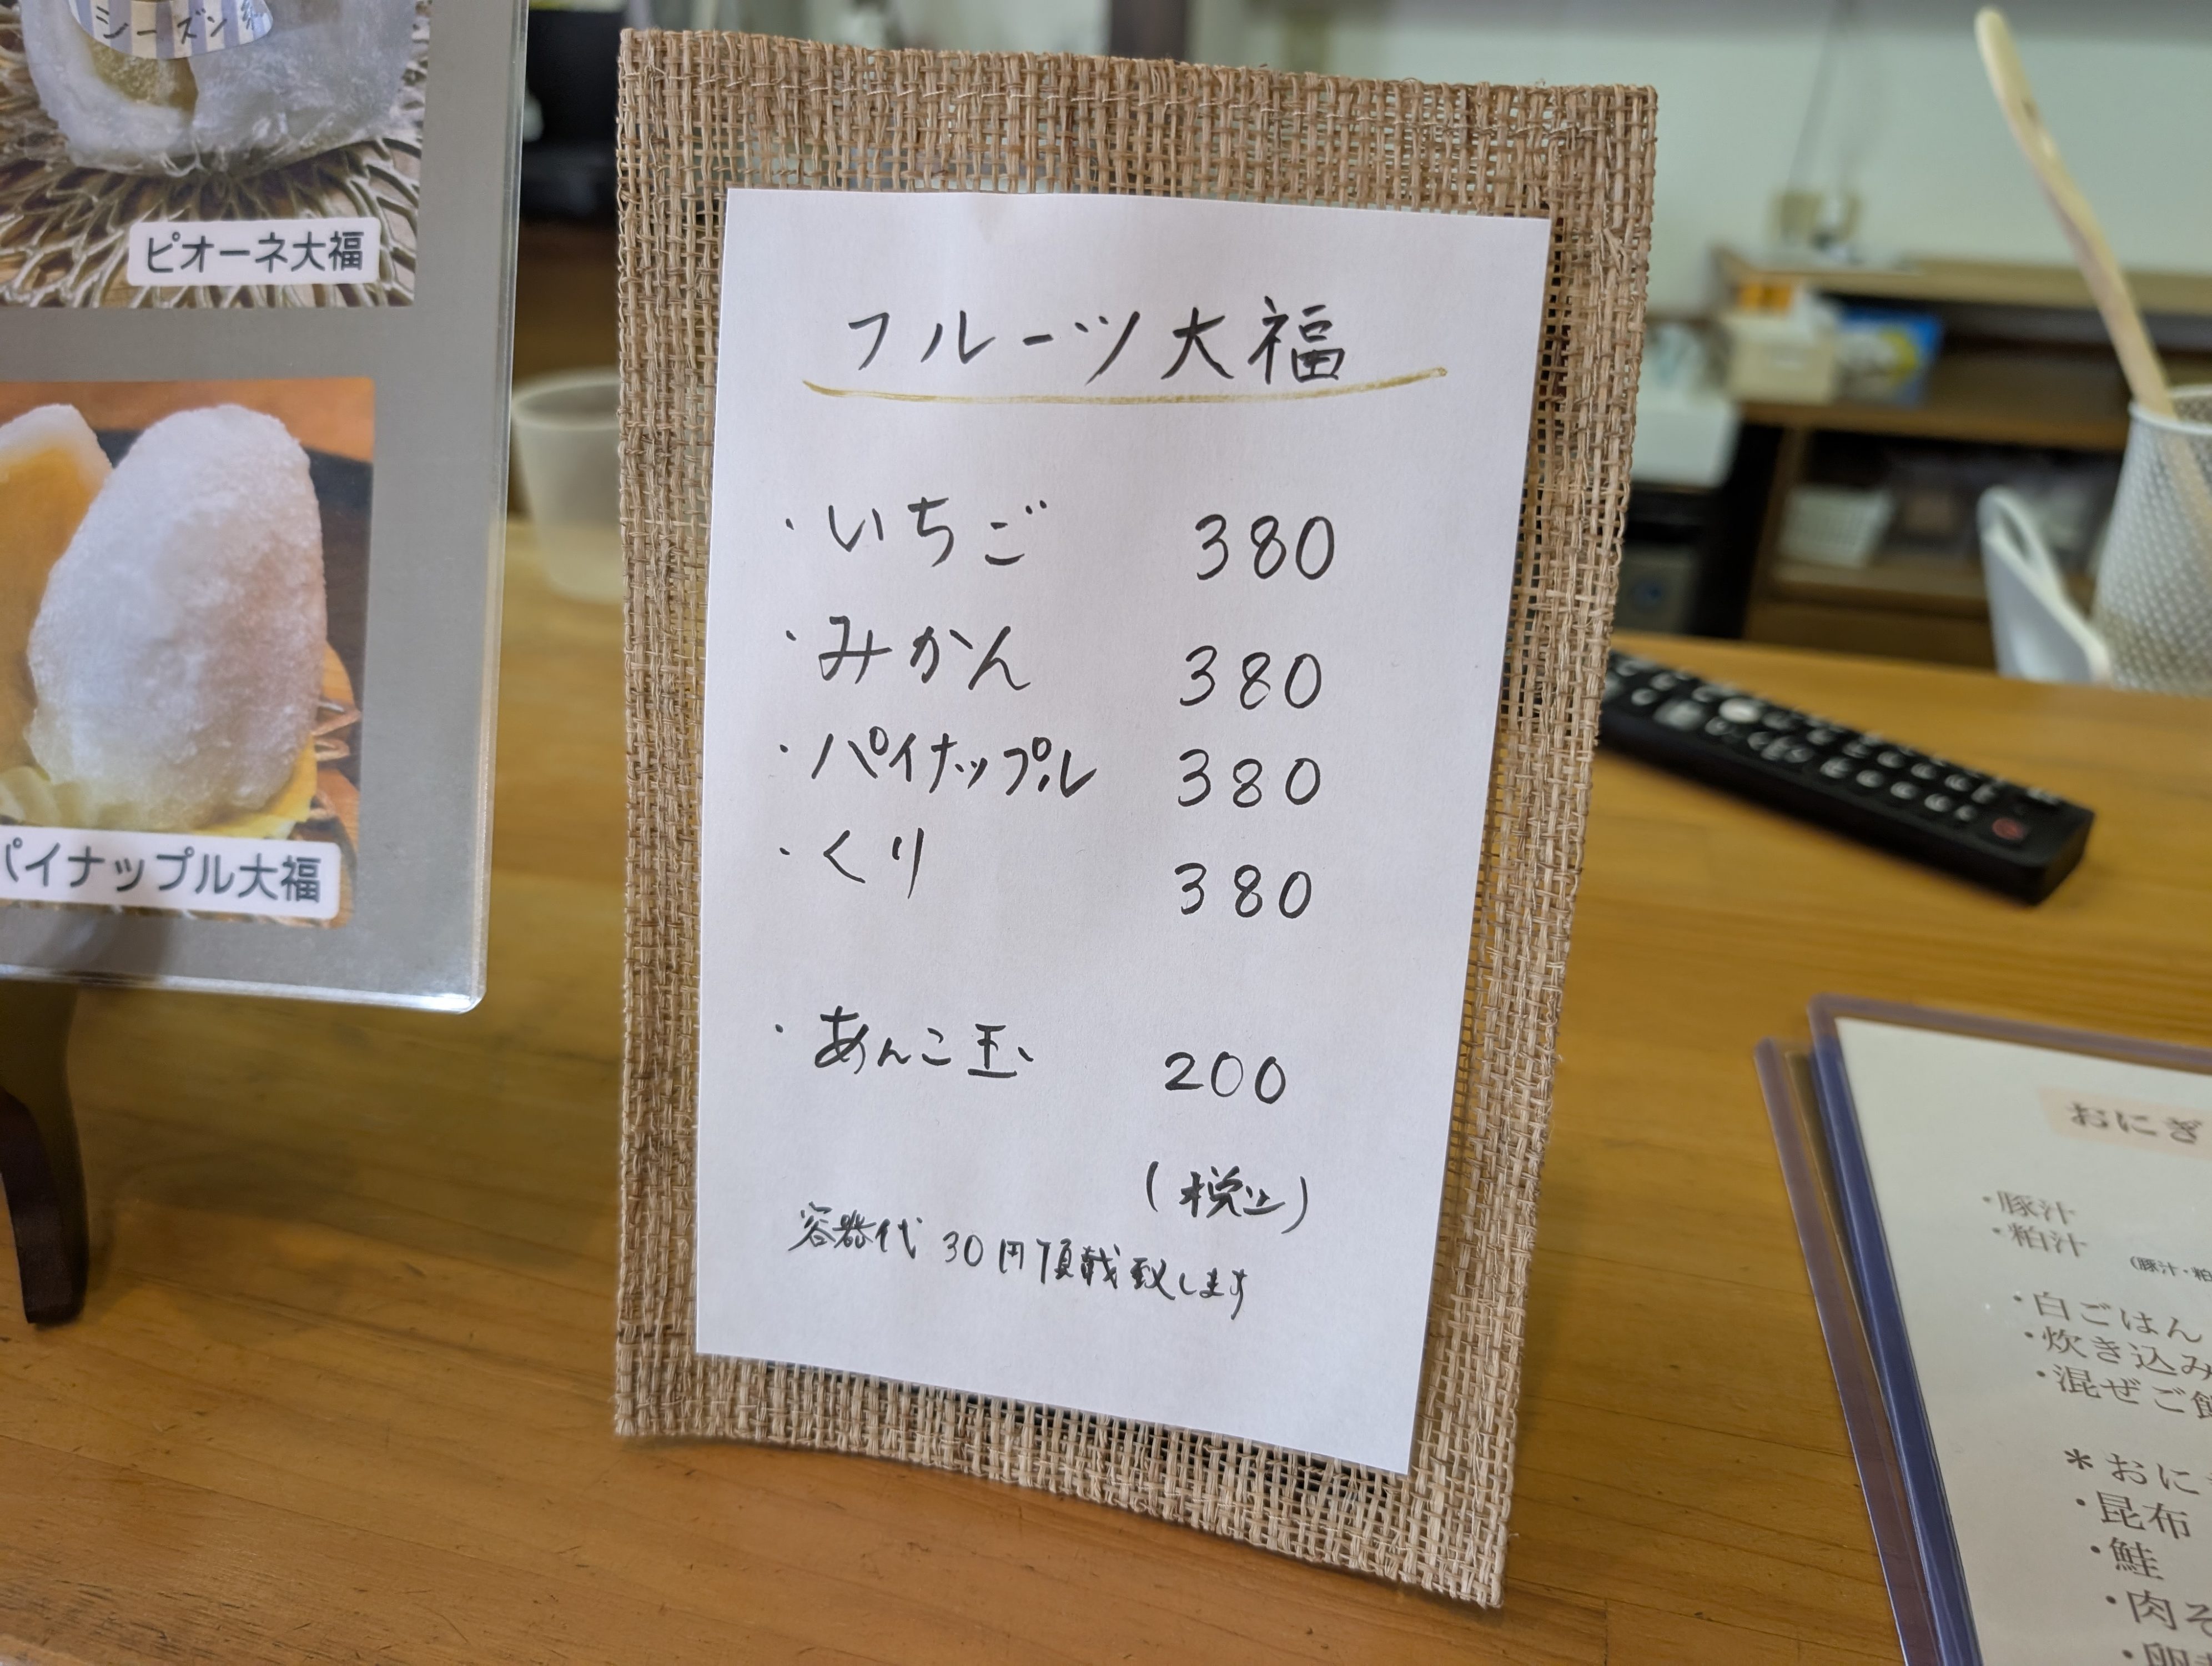 シーズン
ピオーネ大福
パイナップル大福
フルーツ大福
・いちご 380
・みかん 380
・パイナップル 380
・くり 380
・あんこ玉 200
(税込)
容器代 30円頂戴致します
おにぎ
・豚汁
・粕汁
(豚汁・粕
・白ごはん
・炊き込み
・混ぜご飯
*おに
・昆布
・鮭
・肉そ